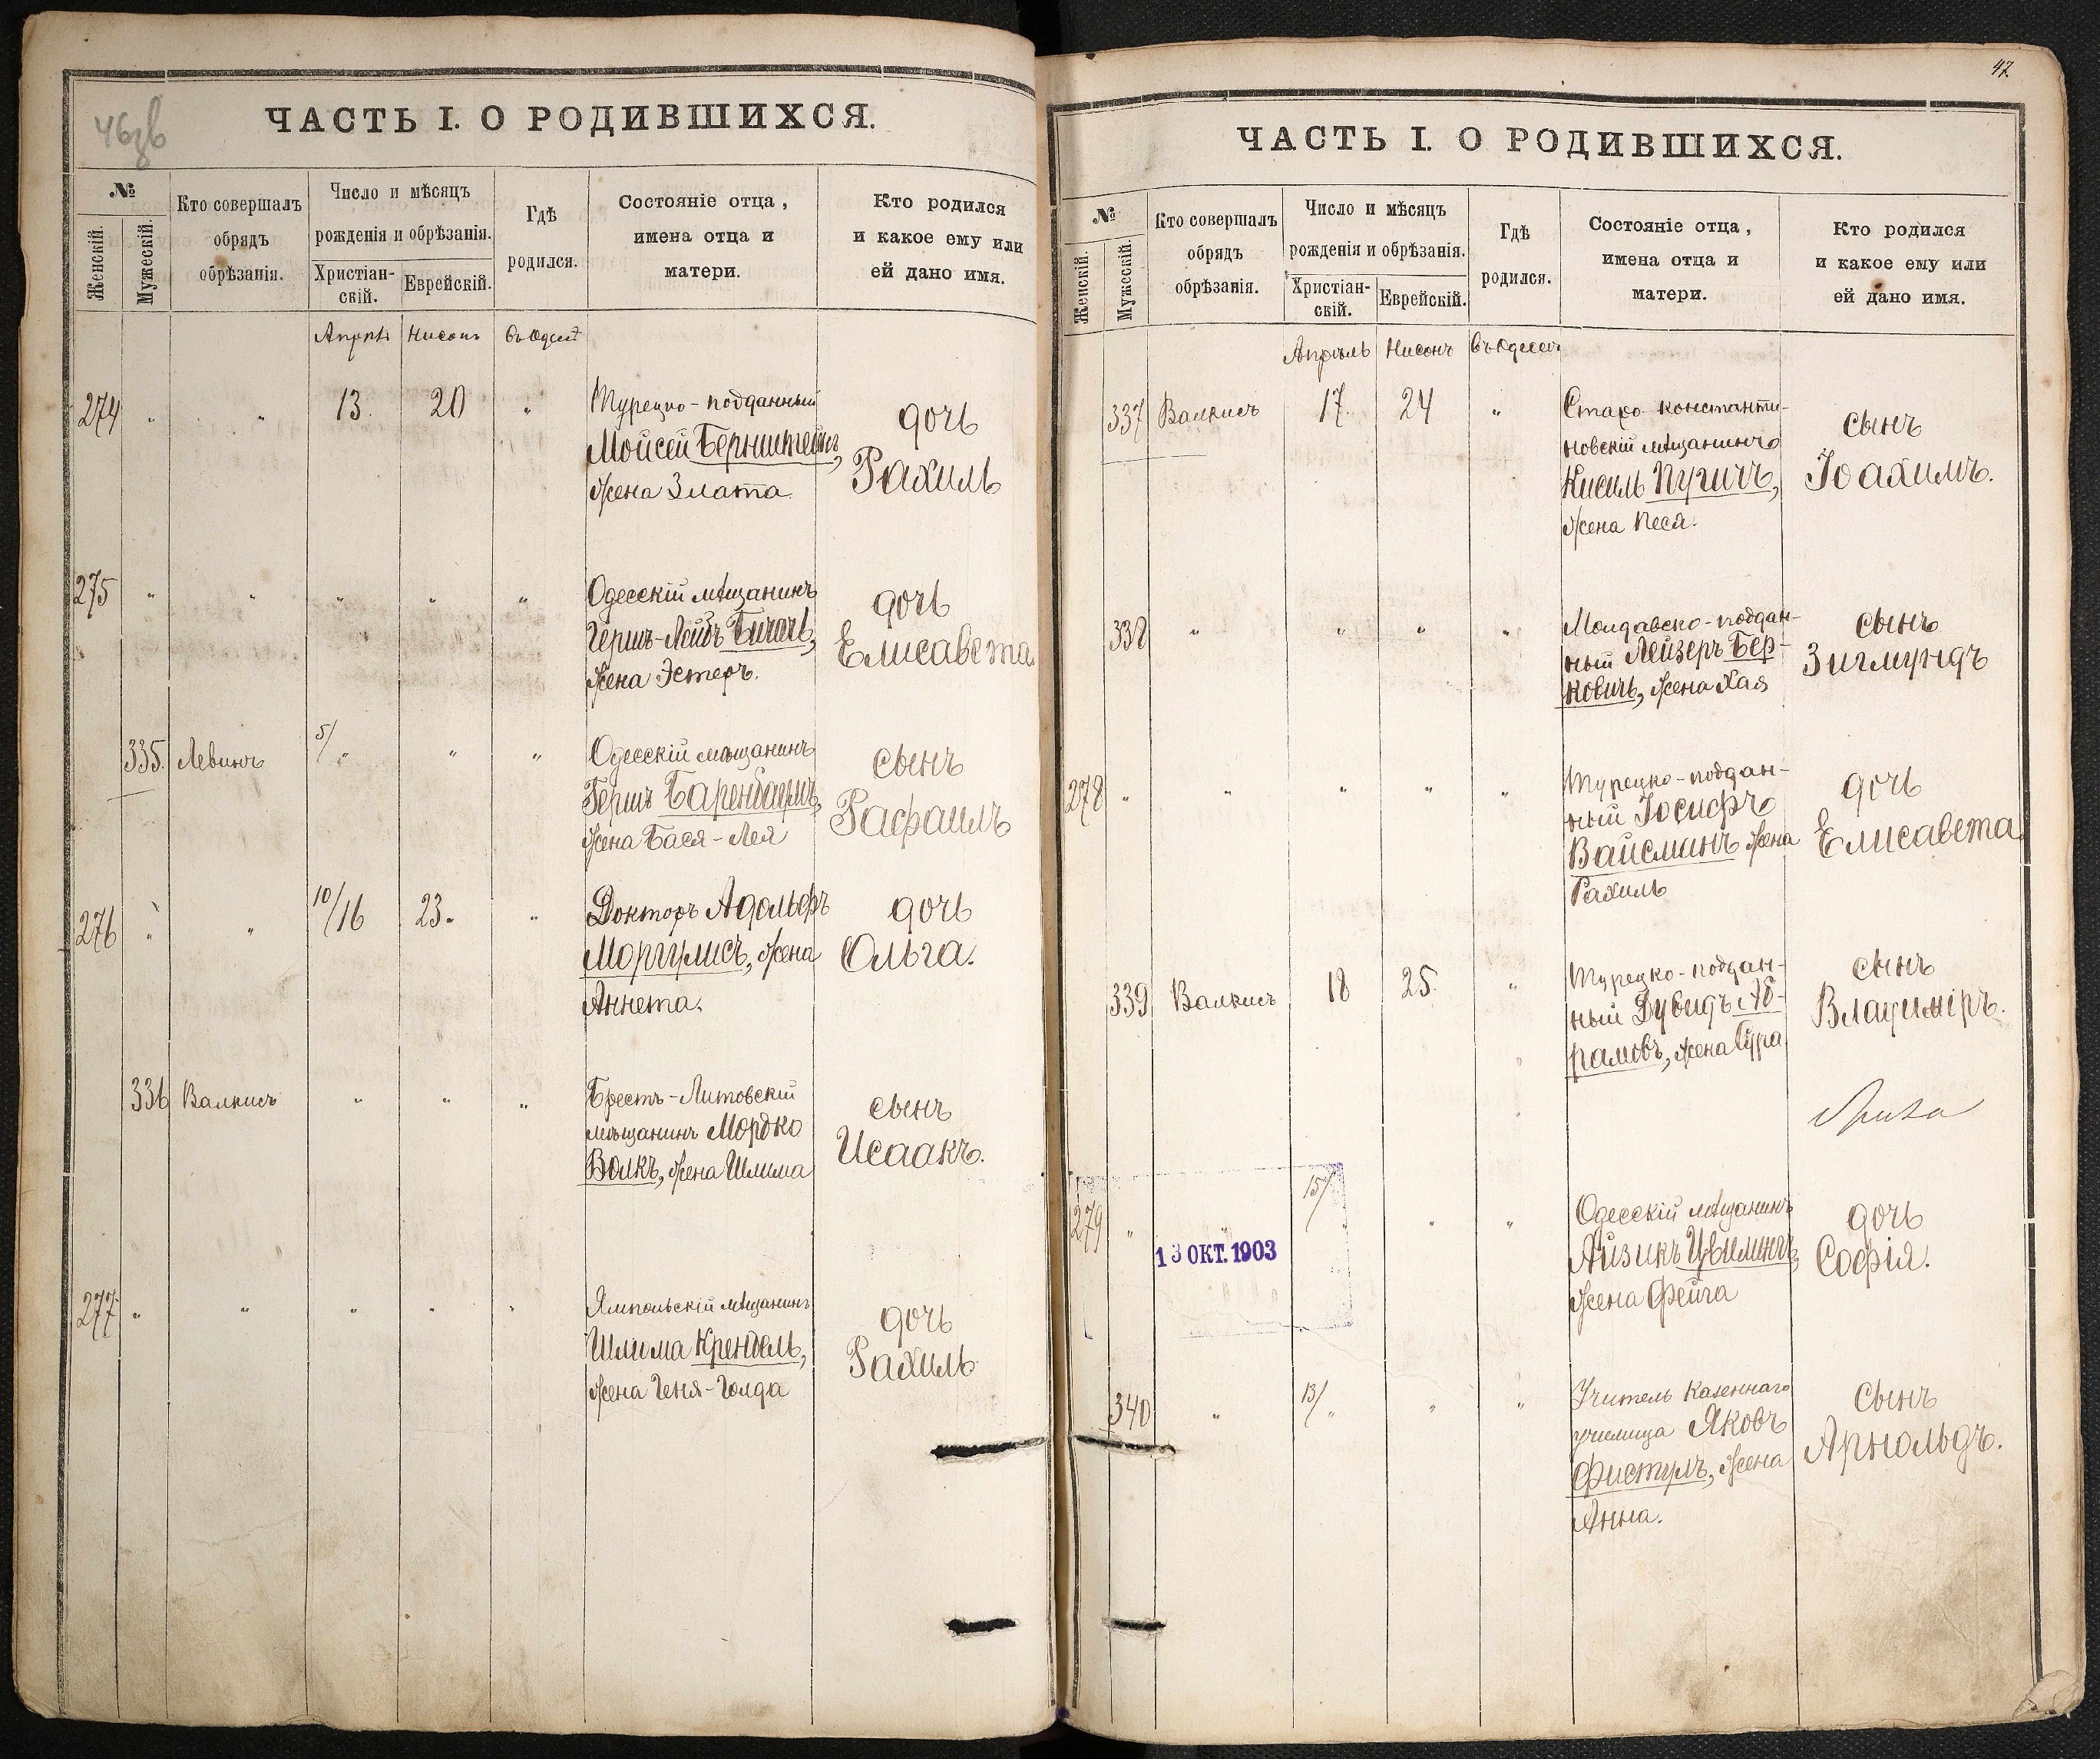 46зв
ЧАСТЬ I. О РОДИВШИХСЯ.
№
Женскій.
Мужескій.
Кто совершалъ
обрядъ
обрѣзанія.
Число и мѣсяцъ
рожденія и обрѣзанія.
Христіан-
скій.
Еврейскій.
Гдѣ
родился.
Состояніе отца,
имена отца и
матери.
Кто родился
и какое ему или
ей дано имя.
Апрѣль Нисонъ въ Одессѣ
274 " " 13. 20 "
Турецко-подданный
Мойсей Бернштейнъ,
жена Злата.
дочь
Рахиль
275 " " " " "
Одесскій мѣщанинъ
Гершъ-Лейбъ
жена Эстеръ.
дочь
Елисавета
335. Левинъ 5/" " "
Одесскій мѣщанинъ
Гершъ Баренбаумъ,
жена Бася-Лея
сынъ
Рафаилъ
276 " " 10/16 23. "
Докторъ Адольфъ
Моргулисъ, жена
Аннета.
дочь
Ольга.
336 Валкисъ " " "
Брестъ-Литовскій
мѣщанинъ Мордко
Волкъ, жена Шлима
сынъ
Исаакъ.
277 " " " " "
Ямпольскій мѣщанинъ
Шлома Крендель,
жена Геня-Голда
дочь
Рахиль
47.
ЧАСТЬ I. О РОДИВШИХСЯ.
№
Женскій.
Мужескій.
Кто совершалъ
обрядъ
обрѣзанія.
Число и мѣсяцъ
рожденія и обрѣзанія.
Христіан-
скій.
Еврейскій.
Гдѣ
родился.
Состояніе отца,
имена отца и
матери.
Кто родился
и какое ему или
ей дано имя.
Апрѣль Нисонъ въ Одессѣ
337 Валкисъ 17. 24 "
Старо-константи-
новскій мѣщанинъ
Кисиль Пугичъ,
жена Песя.
сынъ
Іоахимъ.
338 " " " "
Молдавско-поддан-
ный Лейзеръ Бер-
ковичъ, жена Хая
сынъ
Зигмундъ
278 " " " " "
Турецко-поддан-
ный Іосифъ
Вайсманъ жена
Рахиль
дочь
Елисавета
339 Валкисъ 18 25. "
Турецко-поддан-
ный Дувидъ Аб-
рамовъ, жена Сура
сынъ
Владиміръ.
279 " " 15/" " "
13 ОКТ. 1903
Одесскій мѣщанинъ
Айзикъ Цвилингъ,
жена Фейга
дочь
Софія.
340 " 13/" " "
Учитель Казеннаго
училища Яковъ
Фистулъ, жена
Анна.
сынъ
Арнольдъ.